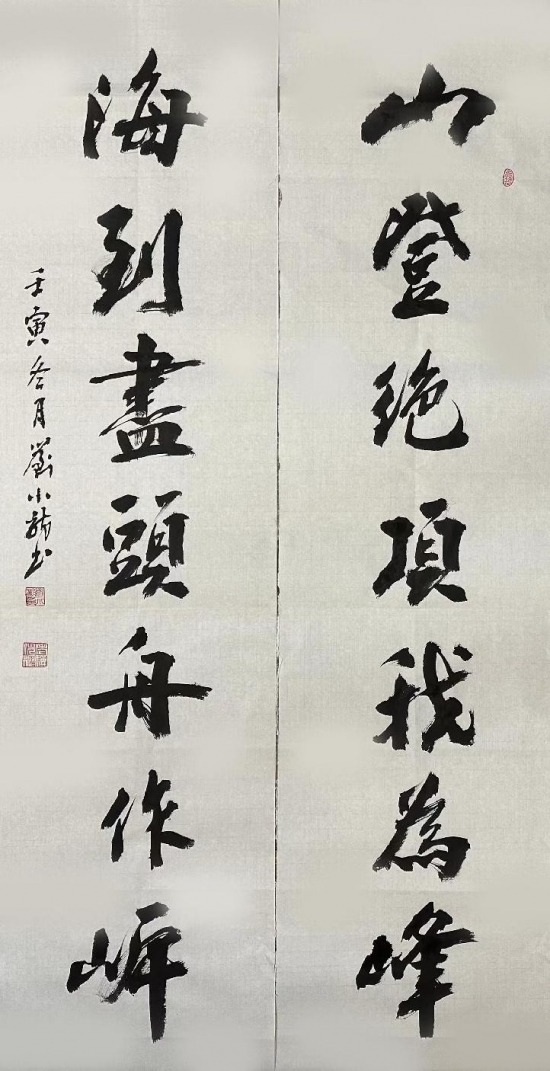 山登絶頂我為峰
海到盡頭舟作岸
壬寅冬月劉小龍书